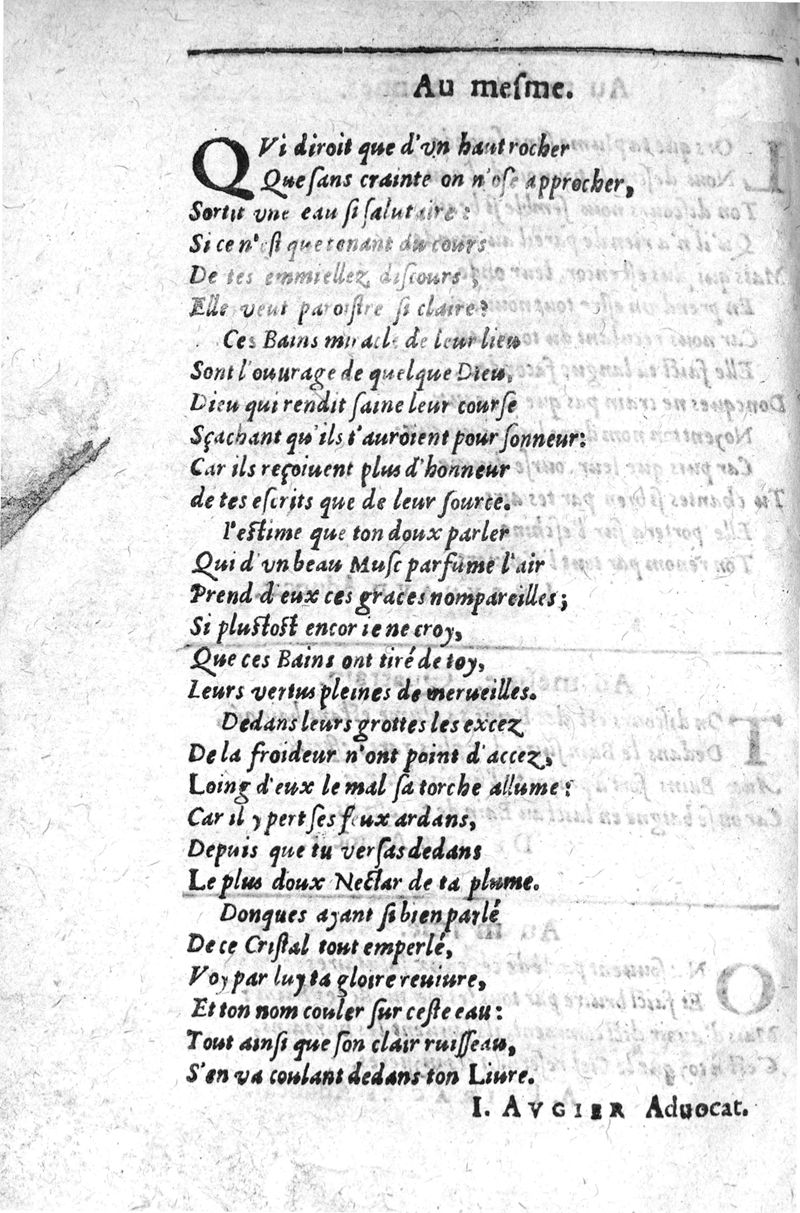 Au meſme.
QVi diroit que d'vn haut rocher
Que ſans crainte on n'oſe approcher,
Sortit vne eau ſi ſalutaire?
Si ce n'eſt que tenant du cours
De tes emmiellez diſcours;
Elle veut paroiſtre ſi claire?
Ces Bains miracle de leur lieu
Sont l'ouurage de quelque Dieu,
Dieu qui rendit ſaine leur courſe
Sçachant qu'ils t'auroient pour ſonneur:
Car ils reçoiuent plus d'honneur
de tes eſcrits que de leur ſource.
I'eſtime que ton doux parler
Qui d'vn beau Muſc parfume l'air
Prend d'eux ces graces nompareilles;
Si pluſtoſt encor ie ne croy,
Que ces Bains ont tiré de toy,
Leurs vertus pleines de merueilles.
Dedans leurs grottes les excez
De la froideur n'ont point d'accez,
Loing d'eux le mal ſa torche allume:
Car il y pert ſes feux ardans,
Depuis que tu verſas dedans
Le plus doux Nectar de ta plume.
Donques ayant ſi bien parlé
De ce Criſtal tout emperlé,
Voy par luy ta gloire reuiure,
Et ton nom couler ſur ceſte eau:
Tout ainſi que ſon clair ruiſſeau,
S'en va coulant dedans ton Liure.
I. AVGIER Aduocat.